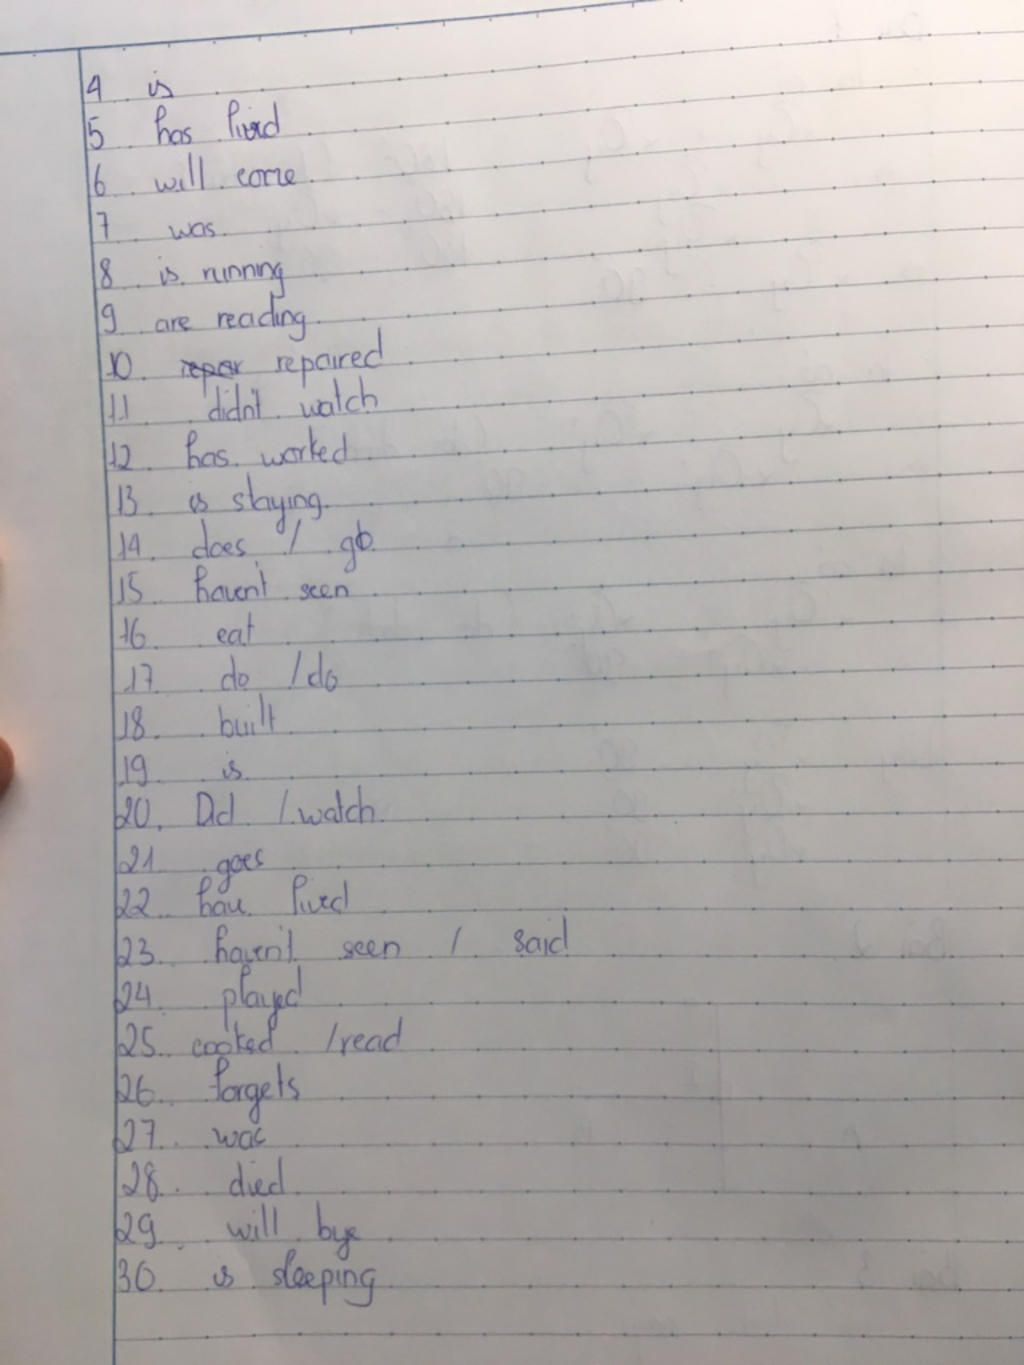 4 is
5 has lived
6 will come
7 was
8 is running
9 are reading
10. repar repaired
11 didn't watch
12. has worked
13. is staying
14. does / go
15. haven't seen
16. eat
17 do / do
18. built
19. is
20. Did / watch
21. goes
22. have lived
23. haven't seen / said
24. played
25. cooked / read
26. forgets
27. was
28. died
29. will bye
30 is sleeping